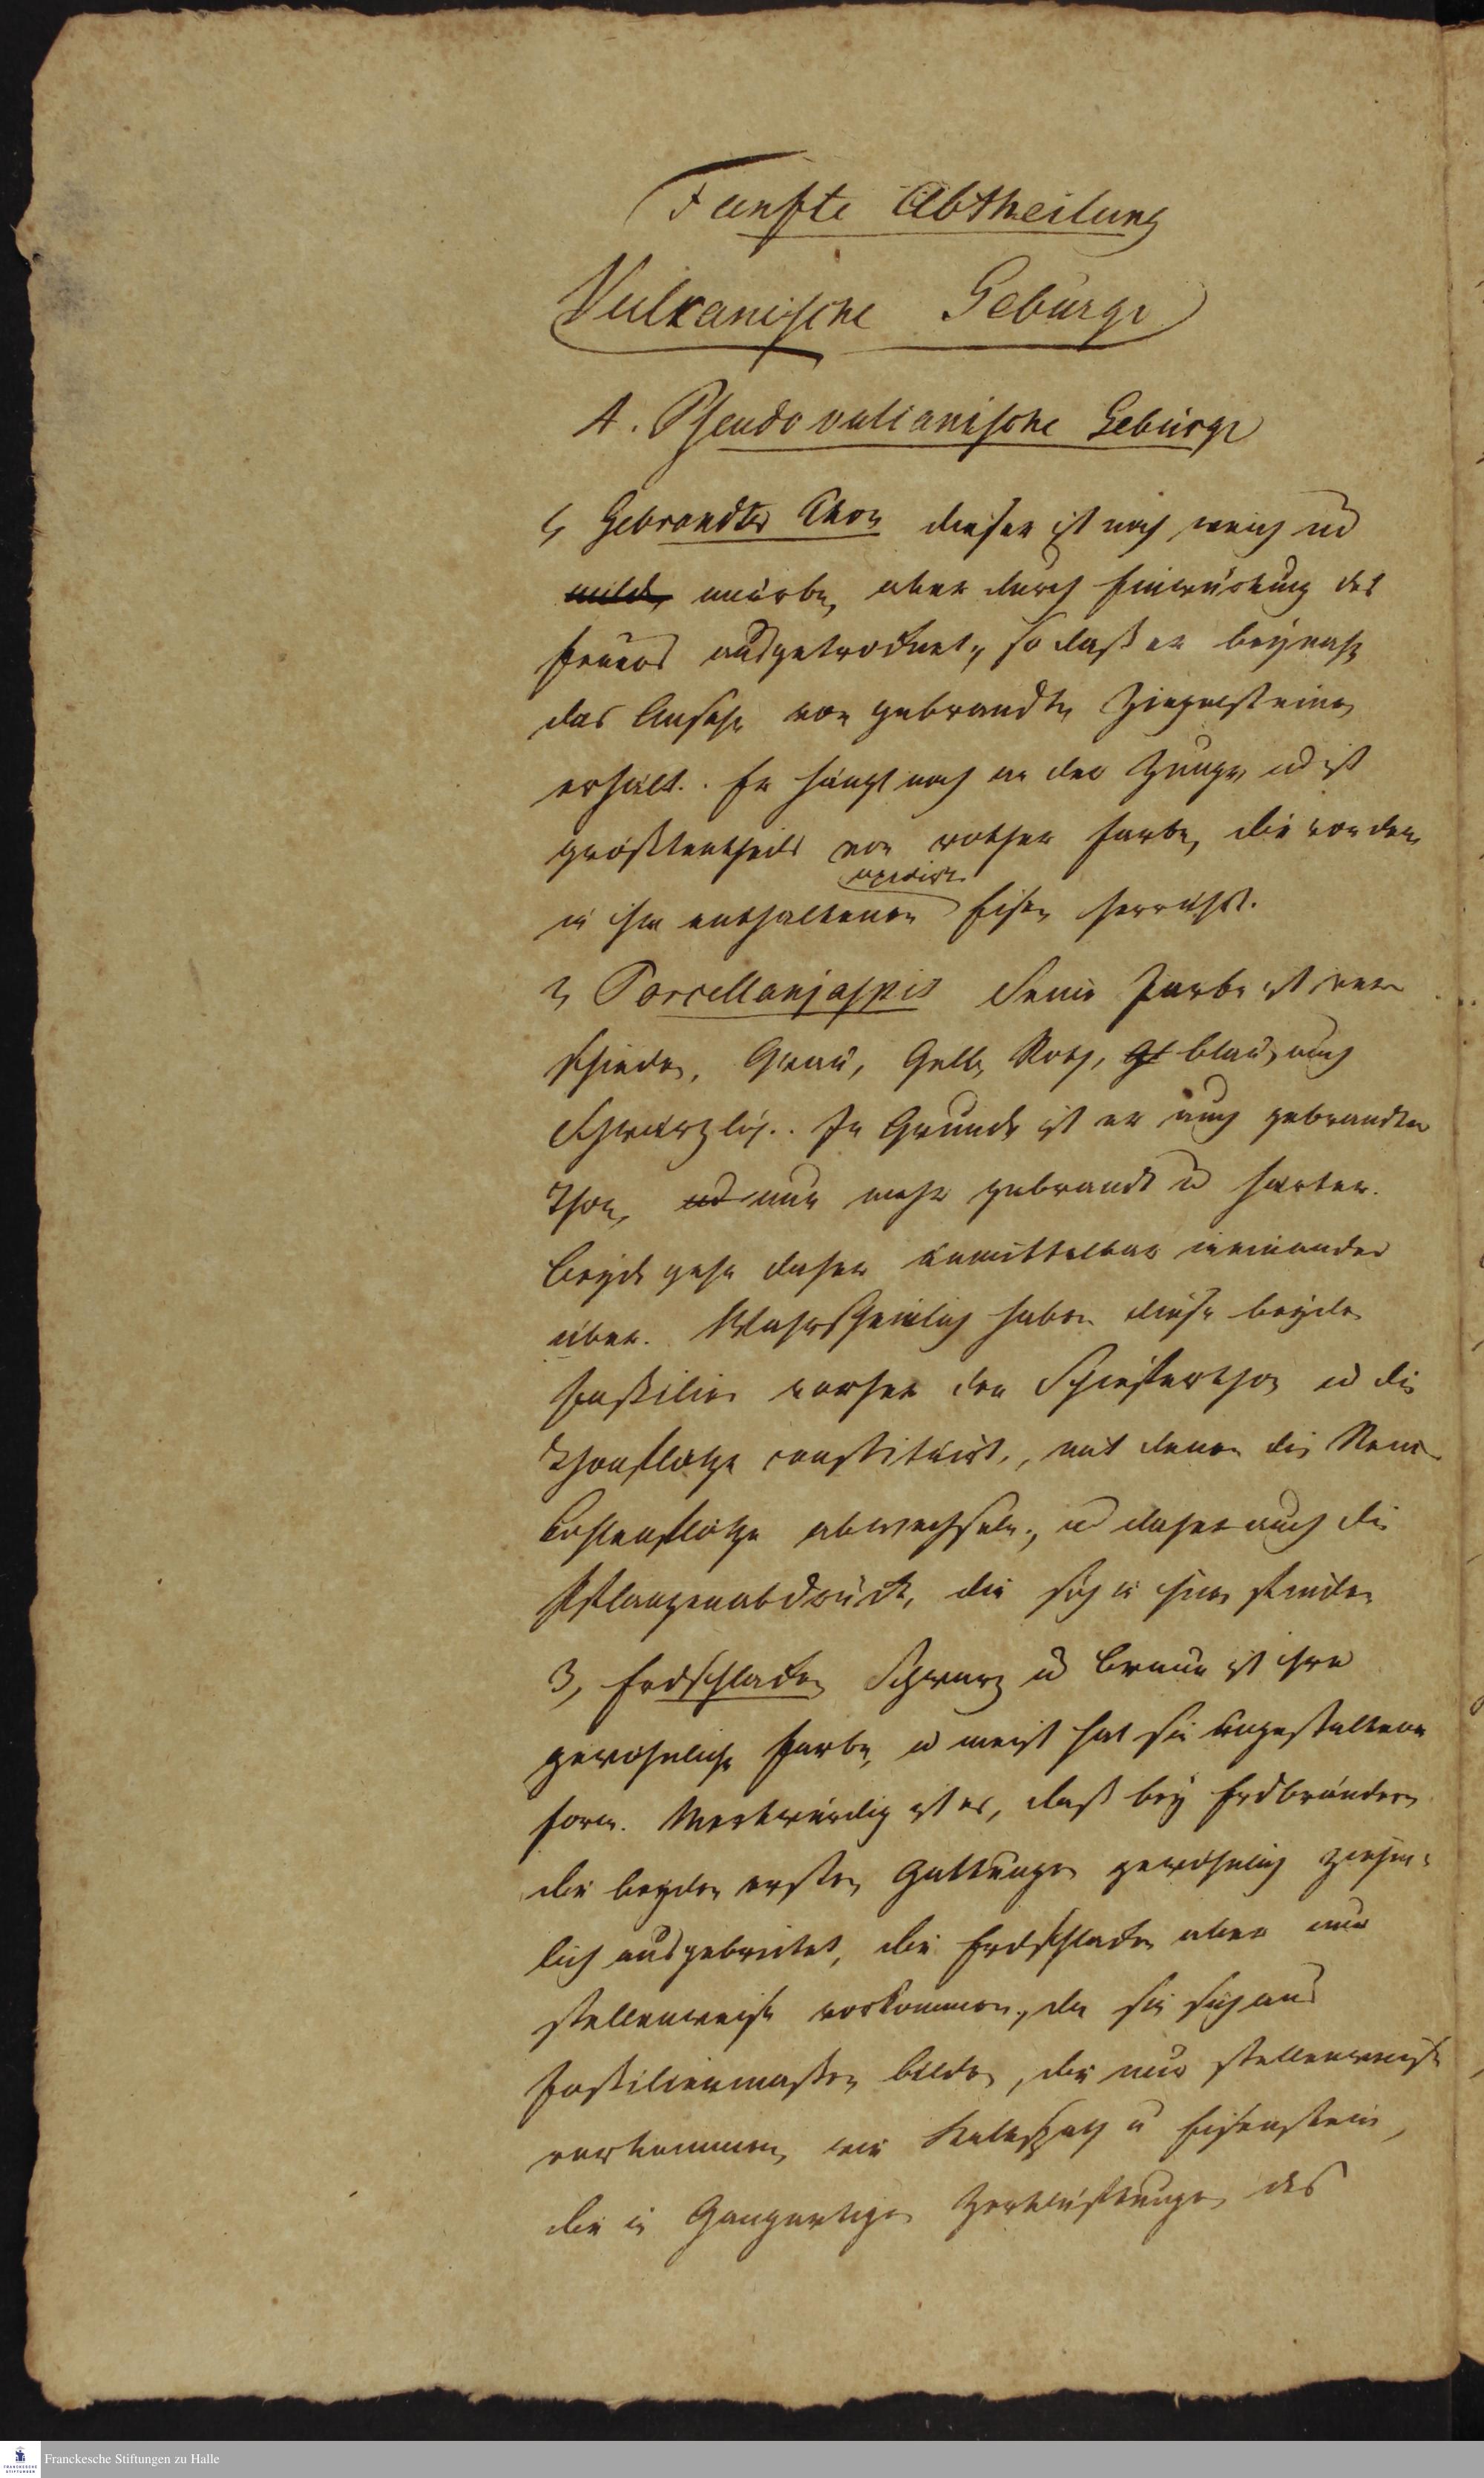 Funfte Abtheilung
Vulkanische Gebürge
A. Pseudovulcanische Gebürge
1, Gebrandter Thon dieser ist noch weich und
milde, mürbe, aber durch Einwürkung des
Feuers ausgetrocknet, so daß er beynahe
das Ansehn von gebrandten Ziegelsteinen
erhält. Er hängt noch an der Zunge und ist
größtentheils von rother Farbe, die von dem
oxidirten
in ihm enthaltenen Eisen herrührt.
2, Porcellanjaspis Seine Farbe ist ver
schieden, Grau, Gelb, Roth, gl blau, auch
Schwärzlich. Im Grunde ist er auch gebrandter
Thon, und nur mehr gebrandt u härter.
Beyde gehn daher unmittelbar ineinander
über. Wahrscheinlich haben diese beyden
Foßilien vorher den Schieferthon und die
Thonflötze constituirt, mit denen die
Kohlenflötze abwechseln, u daher auch die
Pflanzenabdrücke, die sich in ihnen finden
3, Erdschlacken Schwarz u Braun ist ihre
gewöhnliche Farbe, u meist hat sie ungestaltene
Form. Merkwürdig ist es, daß bey Erdbränden
die beyden ersten Gattungen gewöhnlich ziehm-
lich ausgebreitet, die Erdschlacken aber nur
stellenweise vorkommen, da sie sich aus
Foßilienmaßen bilden, die nur stellenweise
vorkommen, wie Kalkspath u Eisenstein,
die in Gangartigen Zerklüftungen des
Franckesche Stiftungen zu Halle